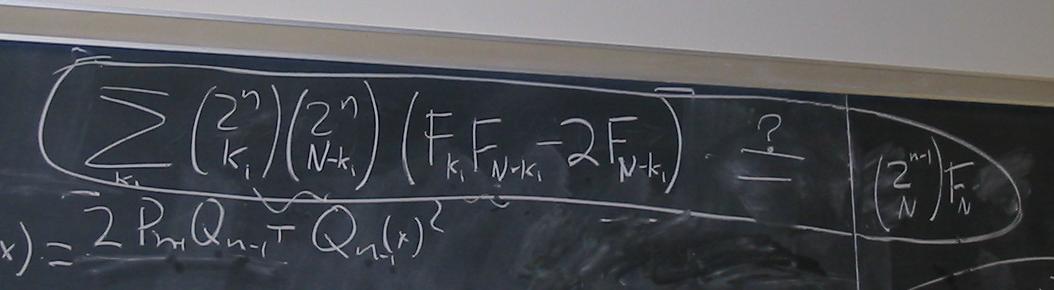 ∑_{k_i} (2^n k_i) (2^n N-k_i) (F_{k_i} F_{N-k_i} - 2F_{N-k_i}) ?= (2^{n-1} N) F_N
x) = 2 P_{n-1} Q_{n-1} + Q_{n-1}(x)^2